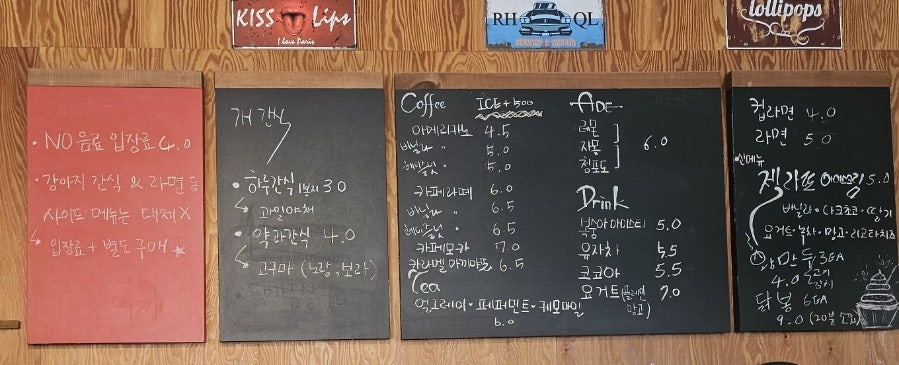 KISS Lips
I love Paris
RH QL
SERVICE & REPAIR
lollipops
• NO 음료 입장료 4.0
• 강아지 간식 & 라면 등
사이드 메뉴는 대체 X
↳ 입장료 + 별도 구매 ★
개 간식
• 하루간식 1봉지 3.0
↳ 과일야채
• 약과간식 4.0
↳ 고구마 (노랑, 보라)
Coffee ICE + 500
아메리카노 4.5
바닐라 〃 5.0
헤이즐넛 〃 5.0
카페라떼 6.0
바닐라 〃 6.5
헤이즐넛 〃 6.5
카페모카 7.0
카라멜 마끼아또 6.5
Tea
얼그레이 • 페퍼민트 • 캐모마일
6.0
ADE
레몬
자몽 6.0
청포도
Drink
복숭아 아이스티 5.0
유자차 5.5
코코아 5.5
요거트 (플레인 7.0
망고)
컵라면 4.0
라면 5.0
젤라또 아이스크림 5.0
바닐라 • 다크초코 • 딸기
요거트 • 녹차 • 망고 • 리코타치즈
만두 3EA
4.0 고기
김치
닭봉 6EA
9.0 (20분 소요)